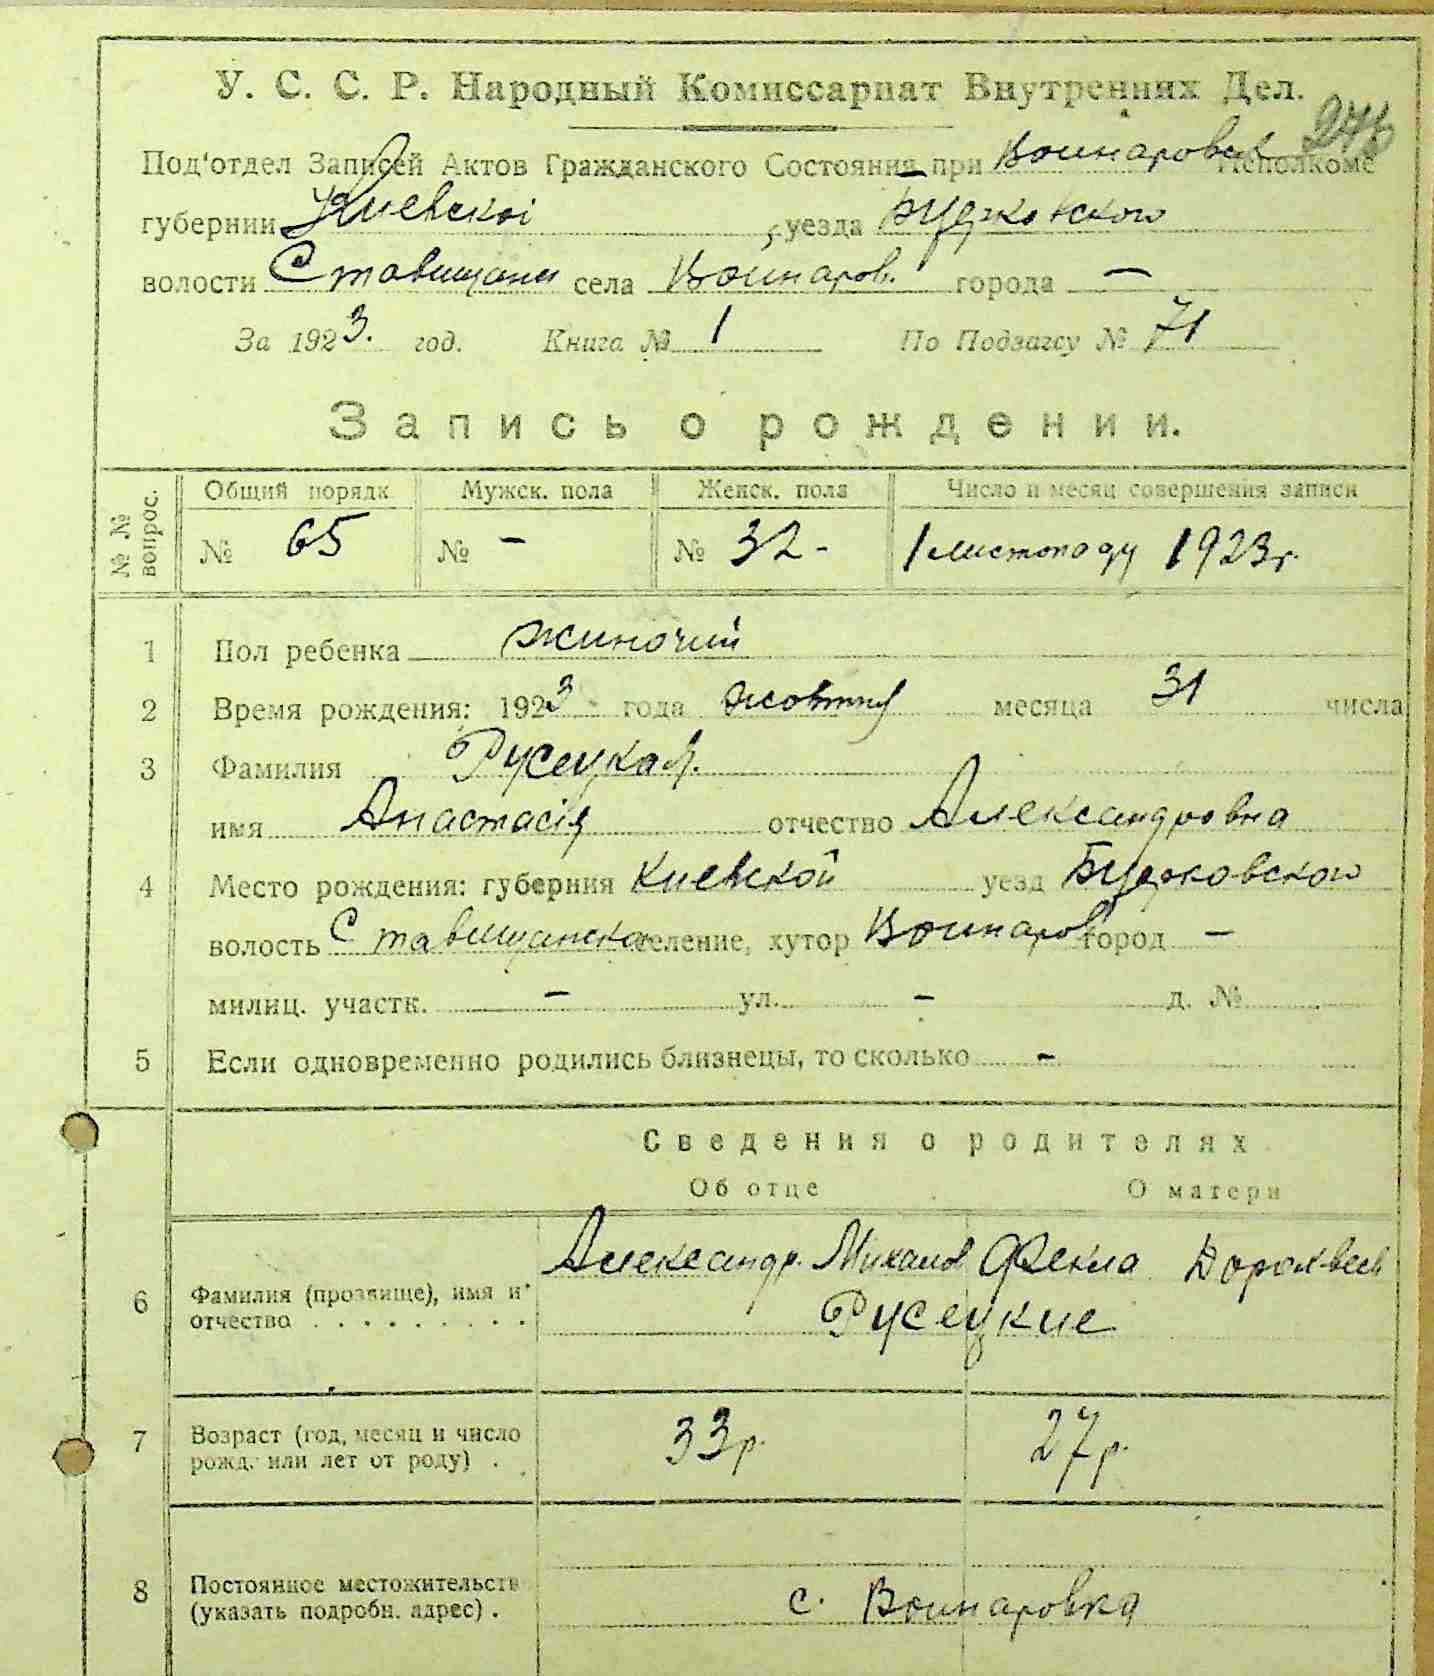 У. С. С. Р. Народный Комиссариат Внутренних Дел.
Под'отдел Записей Актов Гражданского Состояния при Воинаровск Исполкоме
губернии Киевскоі, уезда
волости Ставищан села Воинаров. города —
За 1923. год. Книга № 1 По Подзагсу № 71
Запись о рождении.
№ № вопрос. Общий порядк Мужск. пола Женск. пола Число и месяц совершения записи
№ 65 № - № 32 - 1 листопаду 1923 г.
1 Пол ребенка жиночий
2 Время рождения: 1923 года жовтня месяца 31 числа
3 Фамилия Русецкая.
имя Анастасія отчество Александровна
4 Место рождения: губерния Киевской уезд
волость Ставищанска селение, хутор Воинаров город —
милиц. участк. — ул. — д. №
5 Если одновременно родились близнецы, то сколько -
Сведения о родителях
Об отце О матери
6 Фамилия (прозвище), имя и отчество . . . . . . . . . Александр. Михаилов Фекла
Русецкие
7 Возраст (год, месяц и число рожд. или лет от роду) . 33 р. 27 р.
8 Постоянное местожительств (указать подробн. адрес) . с. Воинаровка